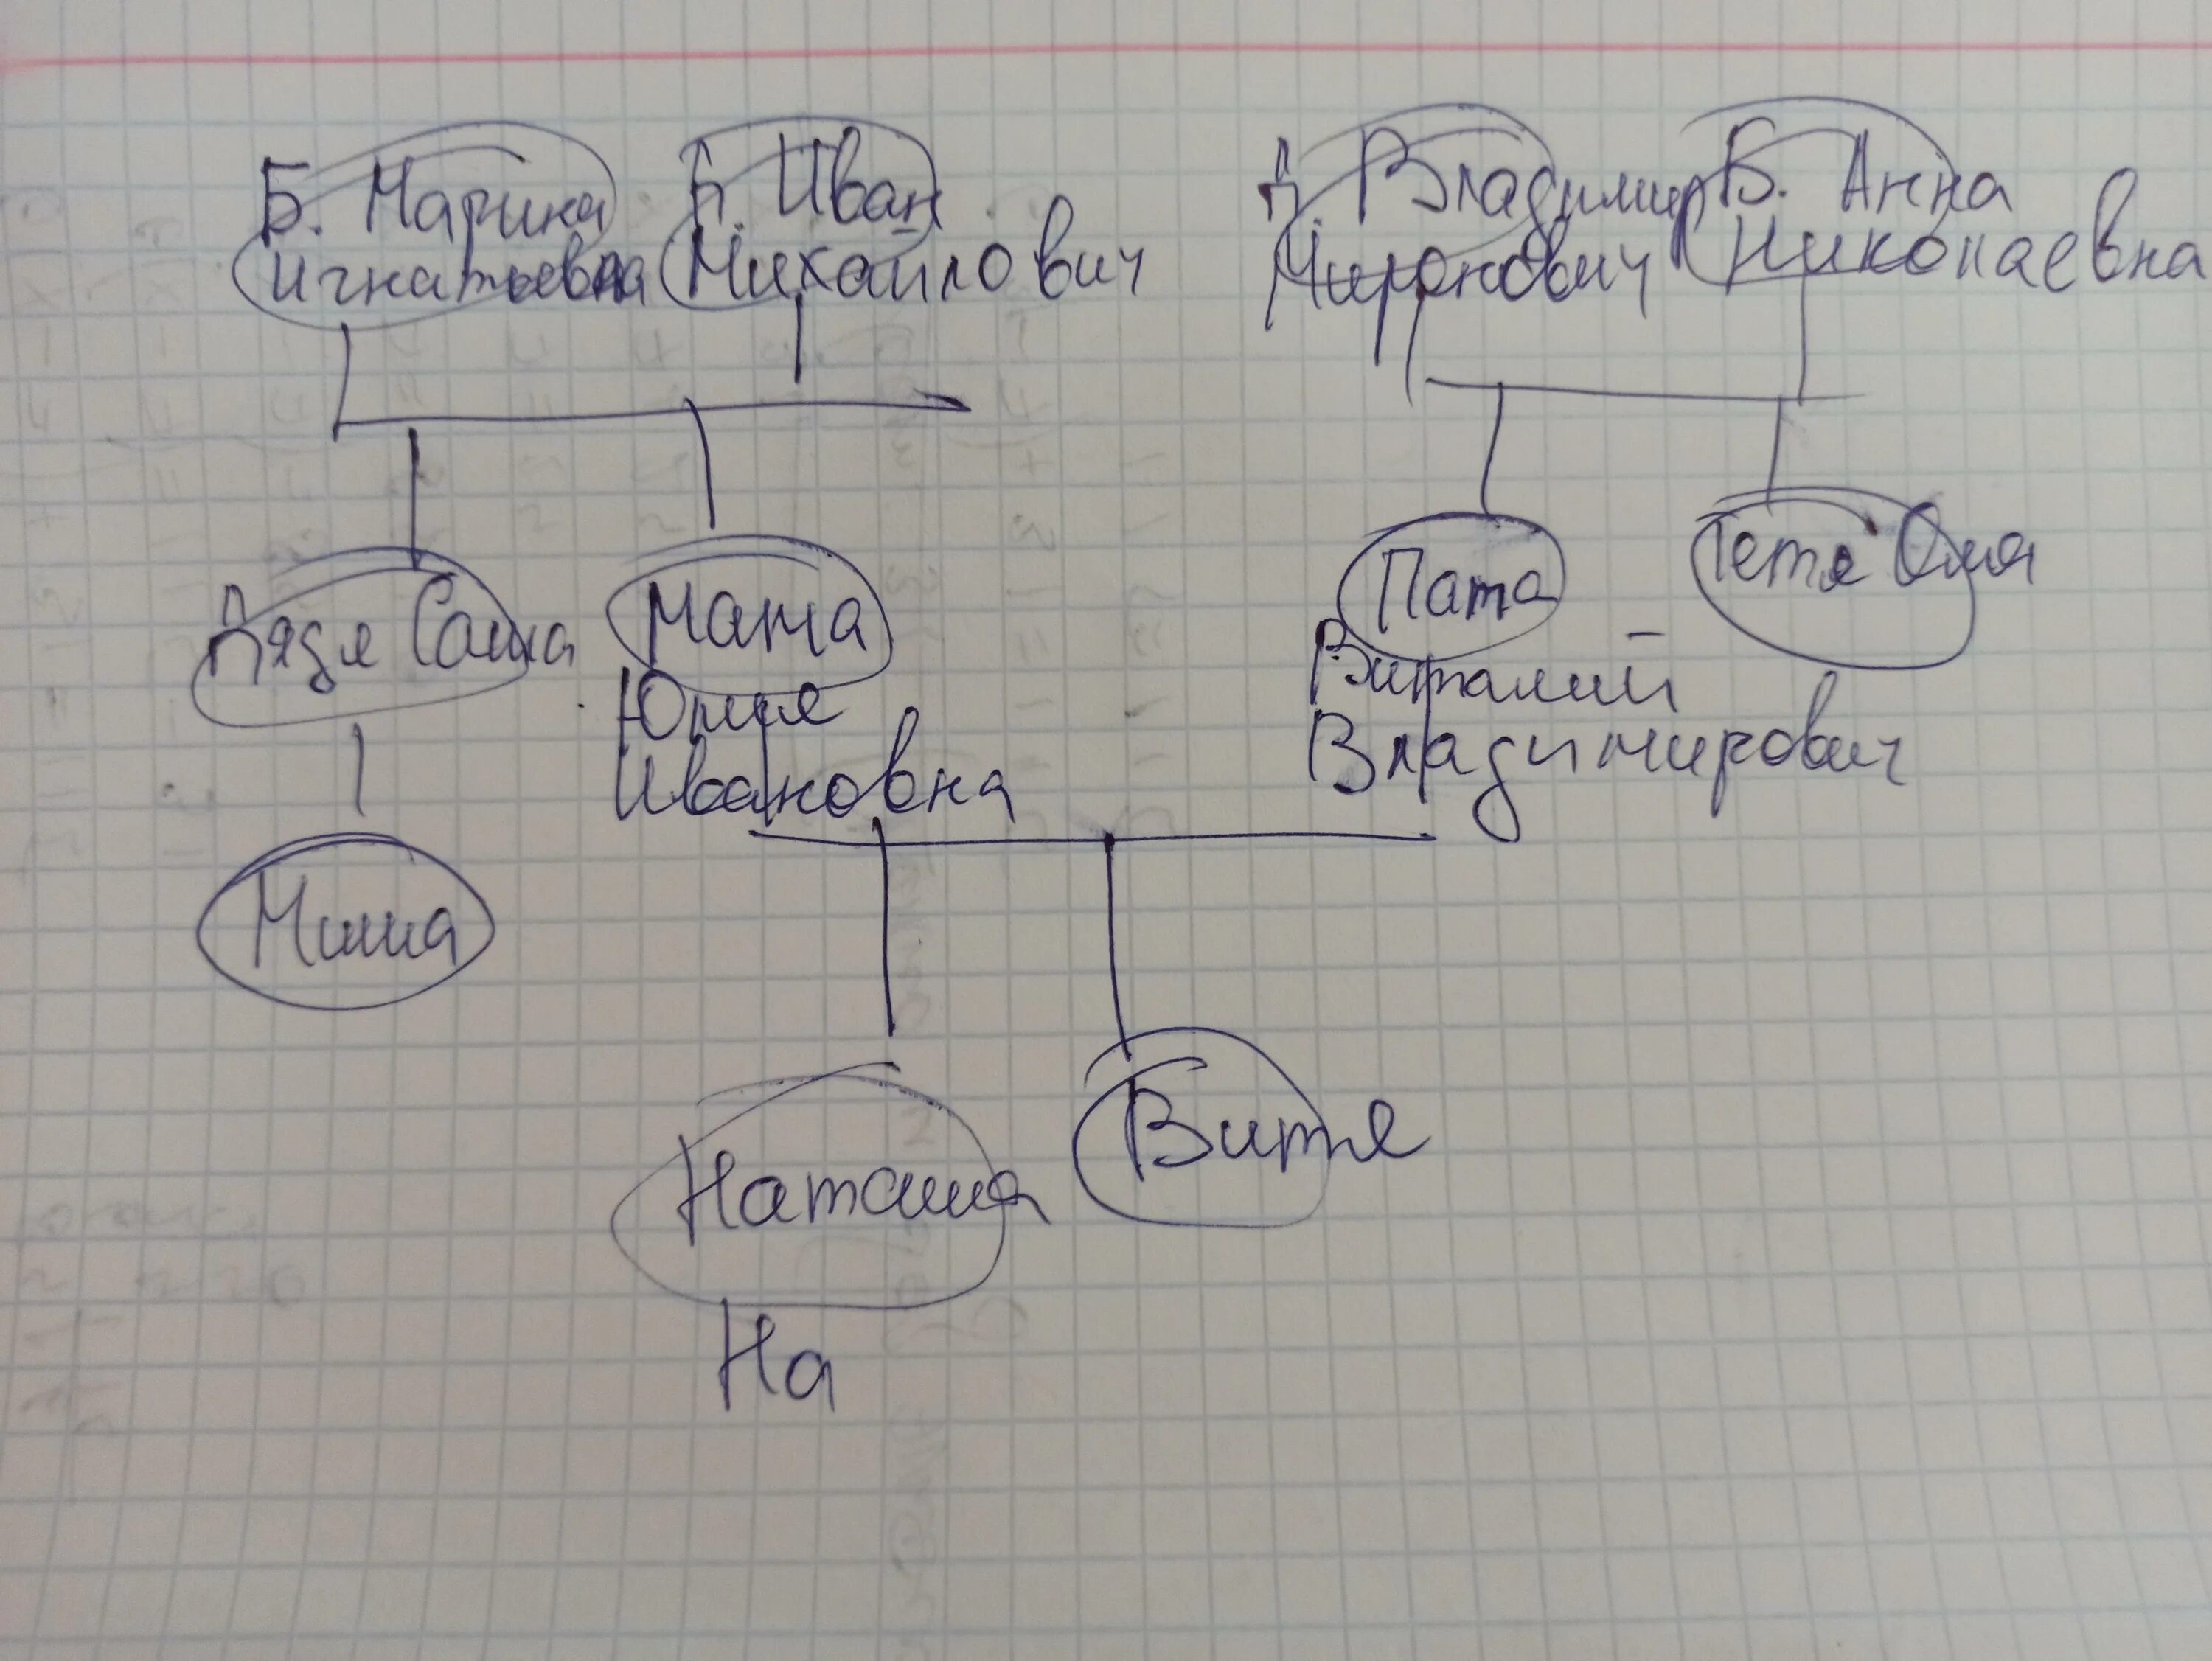 Б. Марина
Игнатьевна
Д. Иван
Михайлович
Д. Владимир
Миронович
Б. Анна
Николаевна
Дядя Саша
Мама
Юлия
Ивановна
Папа
Виталий
Владимирович
Тетя Оля
Миша
Наташа
Витя
На